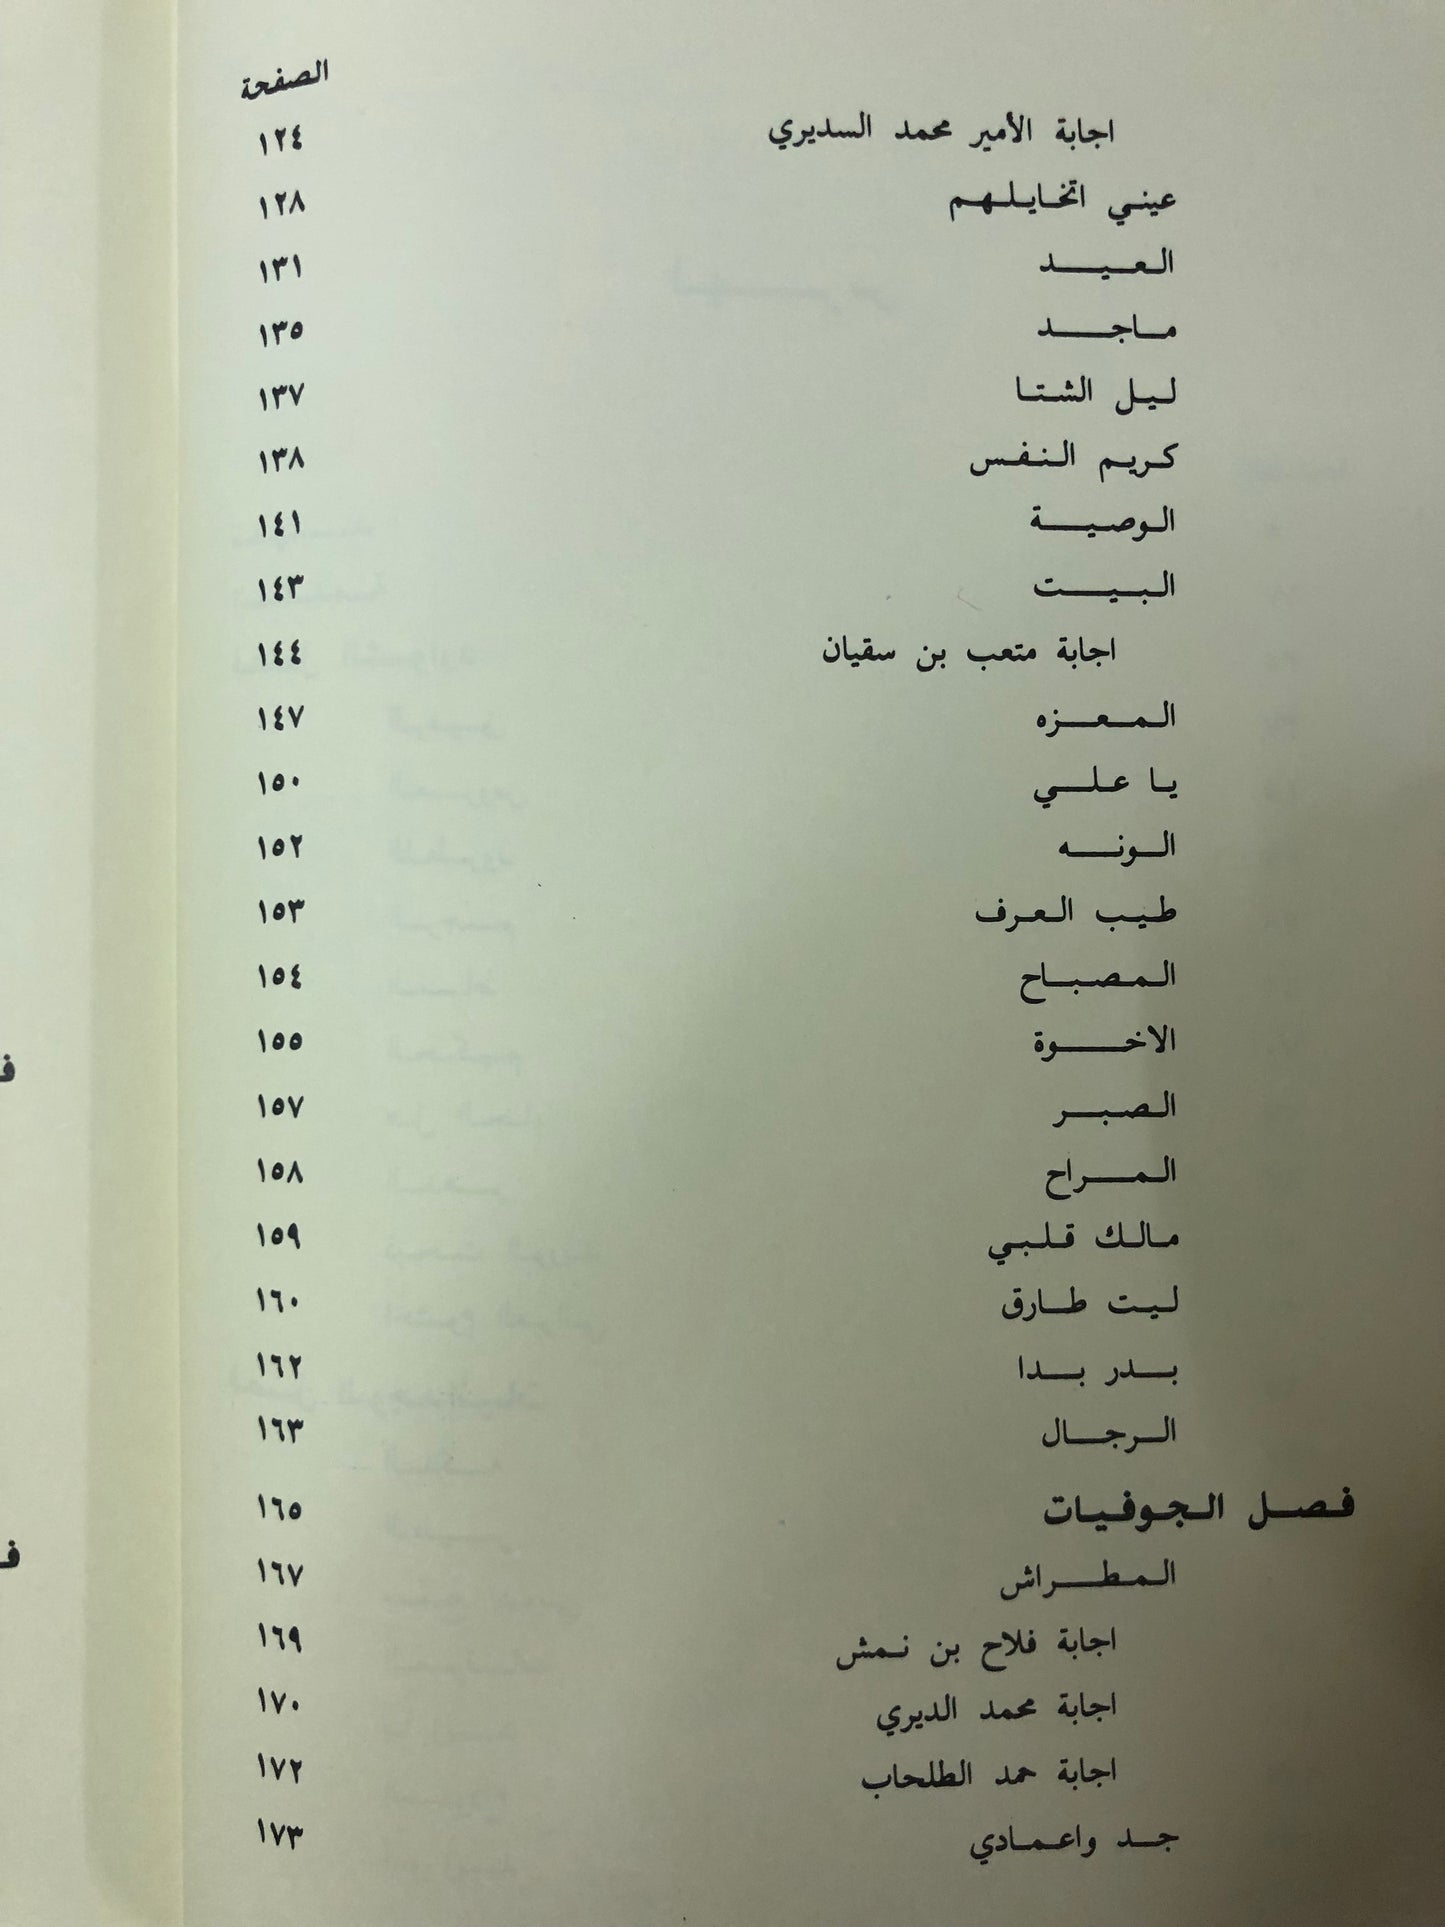 الصفحة
اجابة الأمير محمد السديري ١٢٤
عيني اتخايلهم ١٢٨
العيد ١٣١
ماجد ١٣٥
ليل الشتا ١٣٧
كريم النفس ١٣٨
الوصية ١٤١
البيت ١٤٣
اجابة متعب بن سقيان ١٤٤
المعزه ١٤٧
يا علي ١٥٠
الونه ١٥٢
طيب العرف ١٥٣
المصباح ١٥٤
الاخوة ١٥٥
الصبر ١٥٧
المراح ١٥٨
مالك قلبي ١٥٩
ليت طارق ١٦٠
بدر بدا ١٦٢
الرجال ١٦٣
فصل الجوفيات ١٦٥
المطراش ١٦٧
اجابة فلاح بن نمش ١٦٩
اجابة محمد الديري ١٧٠
اجابة حمد الطلحاب ١٧٢
جد واعمادي ١٧٣